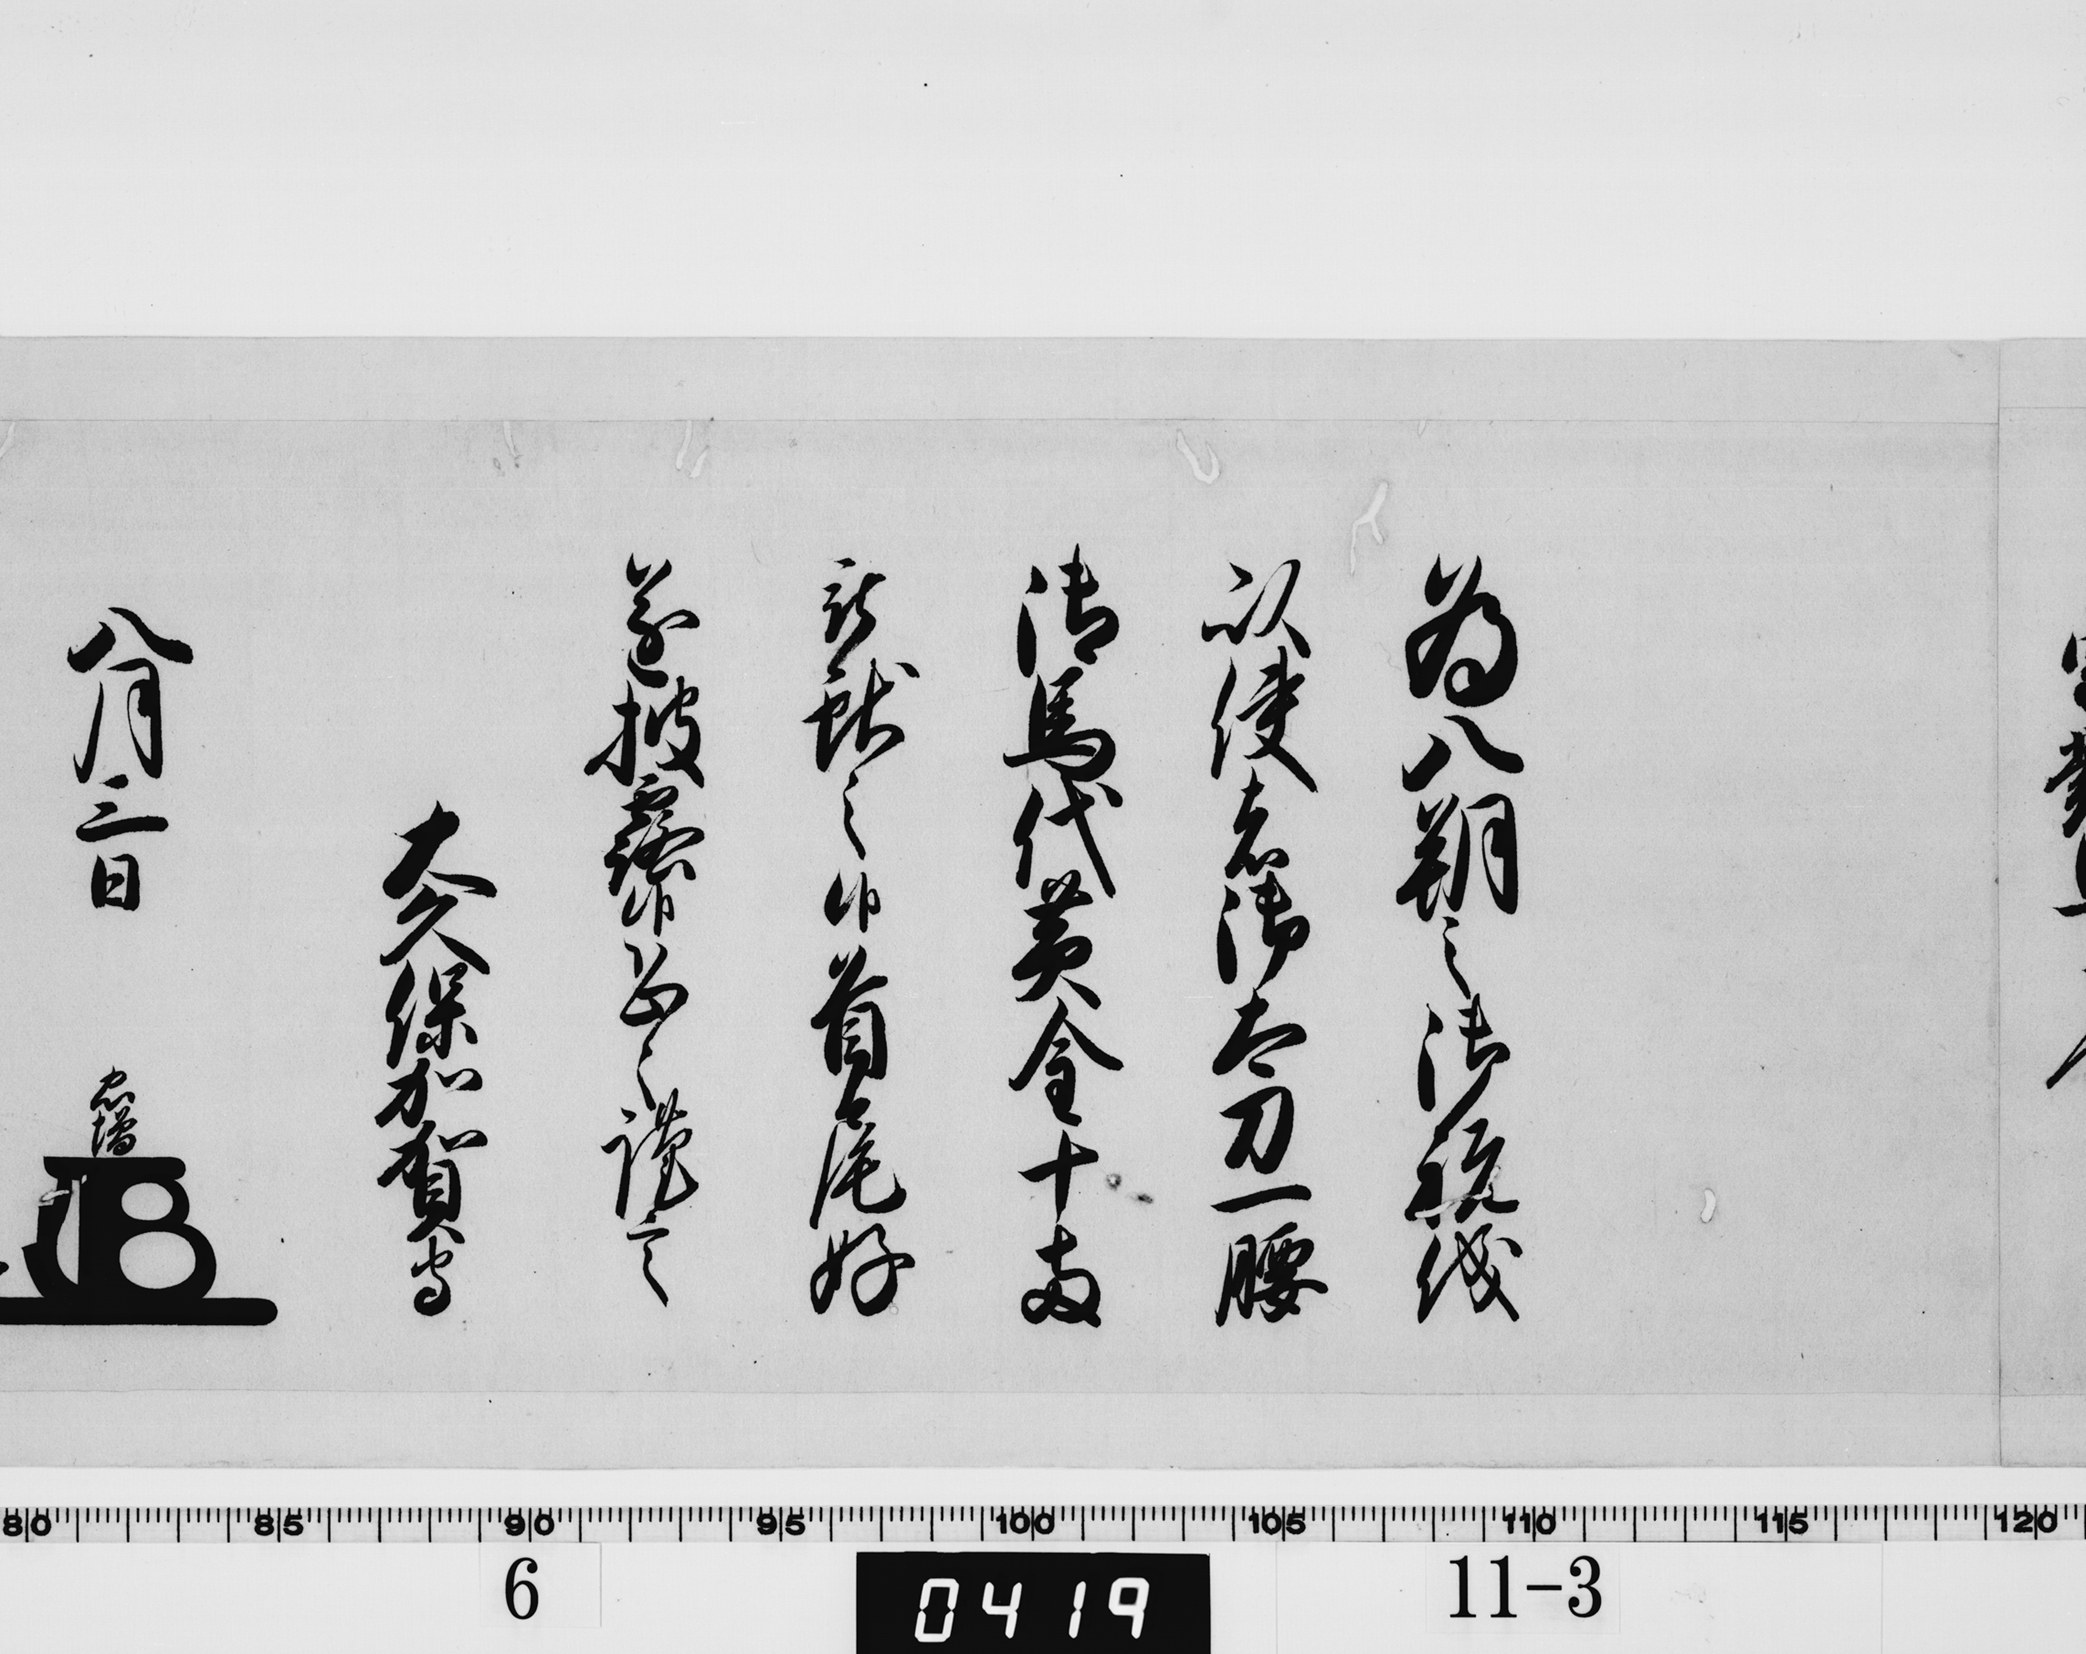 為八朔之御祝儀
以使者御太刀一腰
御馬代黄金十両
被献之候首尾好
遂披露候恐々謹言
大久保加賀守
八月三日 忠増
80 85 90 95 100 105 110 115 120
6 0419 11-3